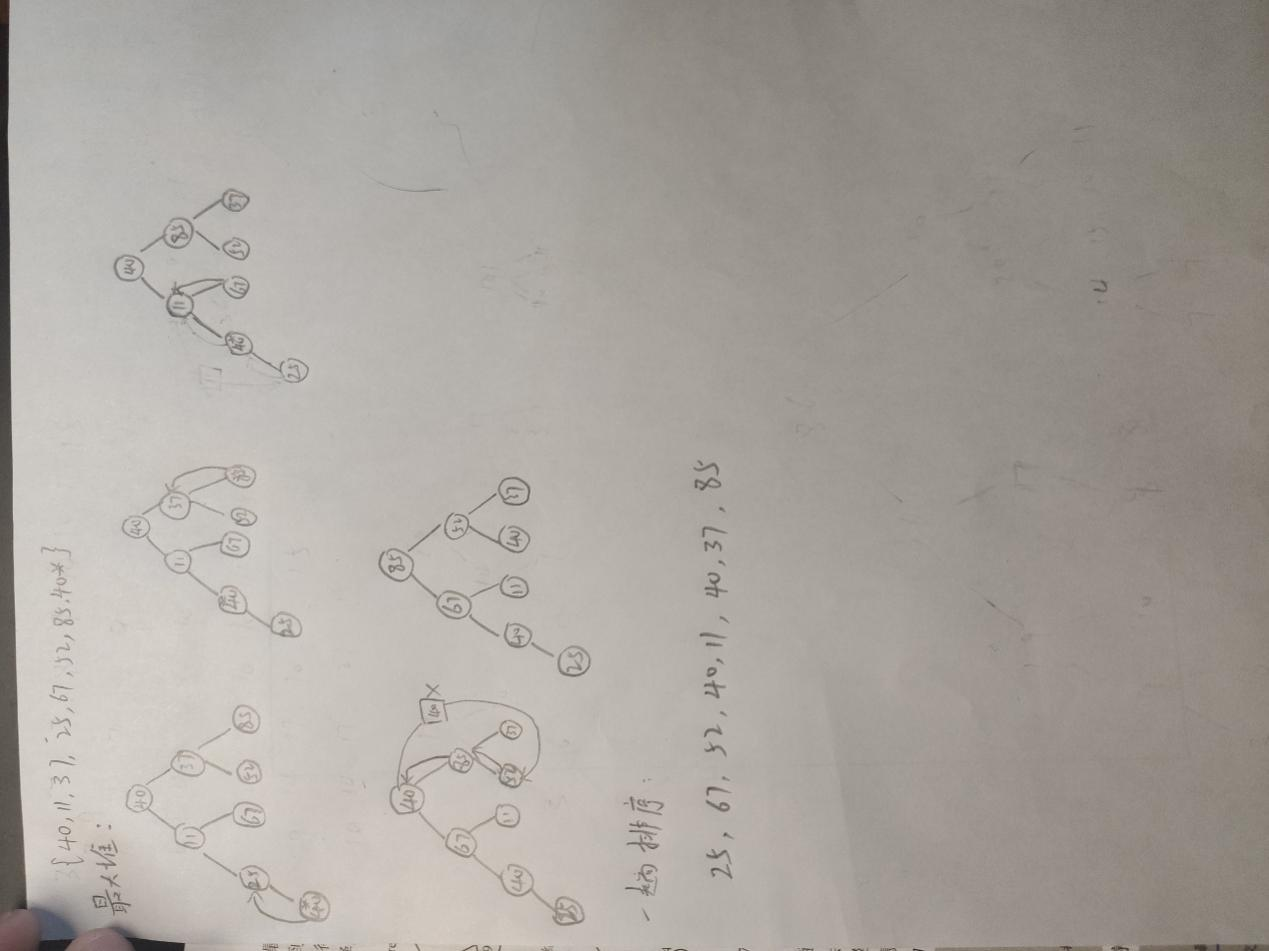 3{40,11,37,25,67,52,85,40*}
最大堆:
40
11 37
25 67 52 85
40*
40
11 37
40* 67 52 85
25
40
11 85
40* 67 52 37
25
40 ×
40
67 85
40 11 52 37
85
67 52
40 11 40 37
25
一趟排序:
25, 67, 52, 40, 11, 40, 37, 85